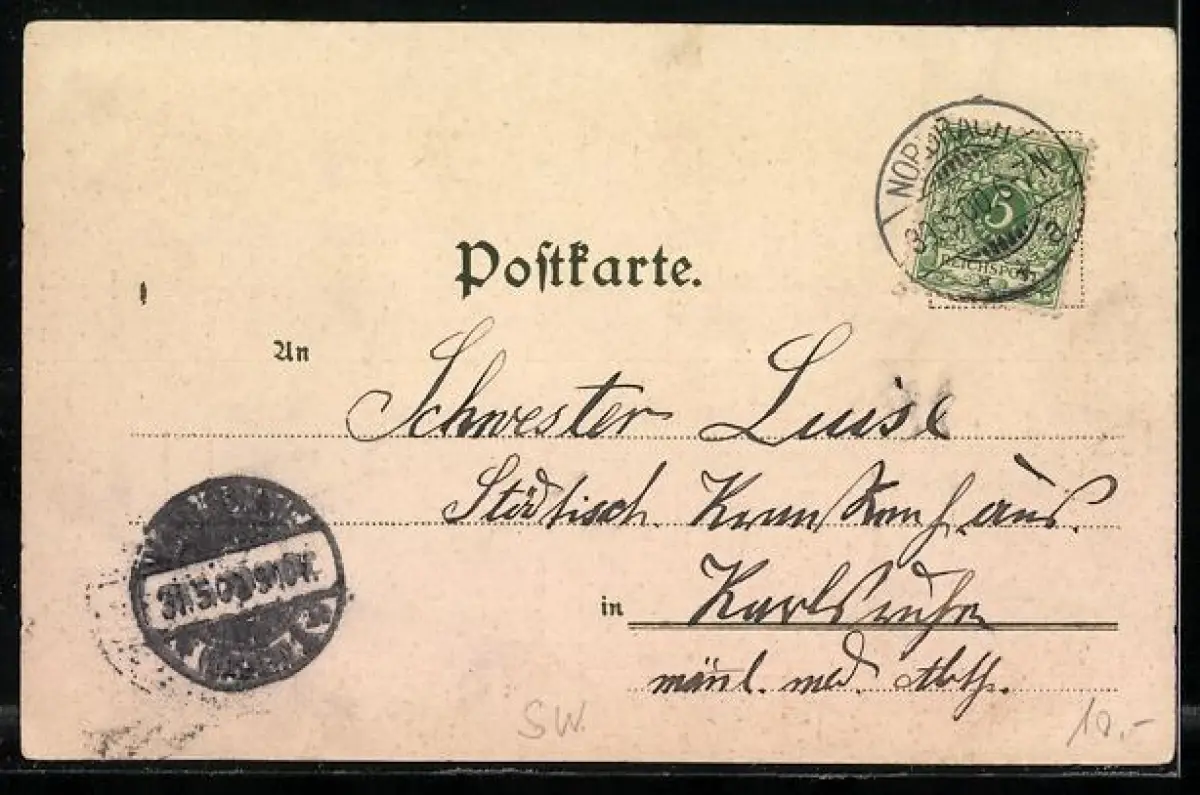 NORDRACH
5
REICHSPOST
Postkarte.
An
Schwester Luise
Städtisch. Krankenhaus.
in Karlsruhe
männl. med. Abth.
31.5.00
SW.
10.-